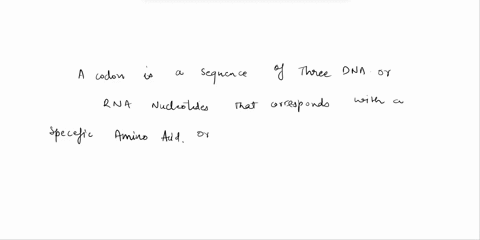 A codon is a sequence of Three DNA or
RNA Nucleotides that corresponds with a
Specefic Amino Acid. or